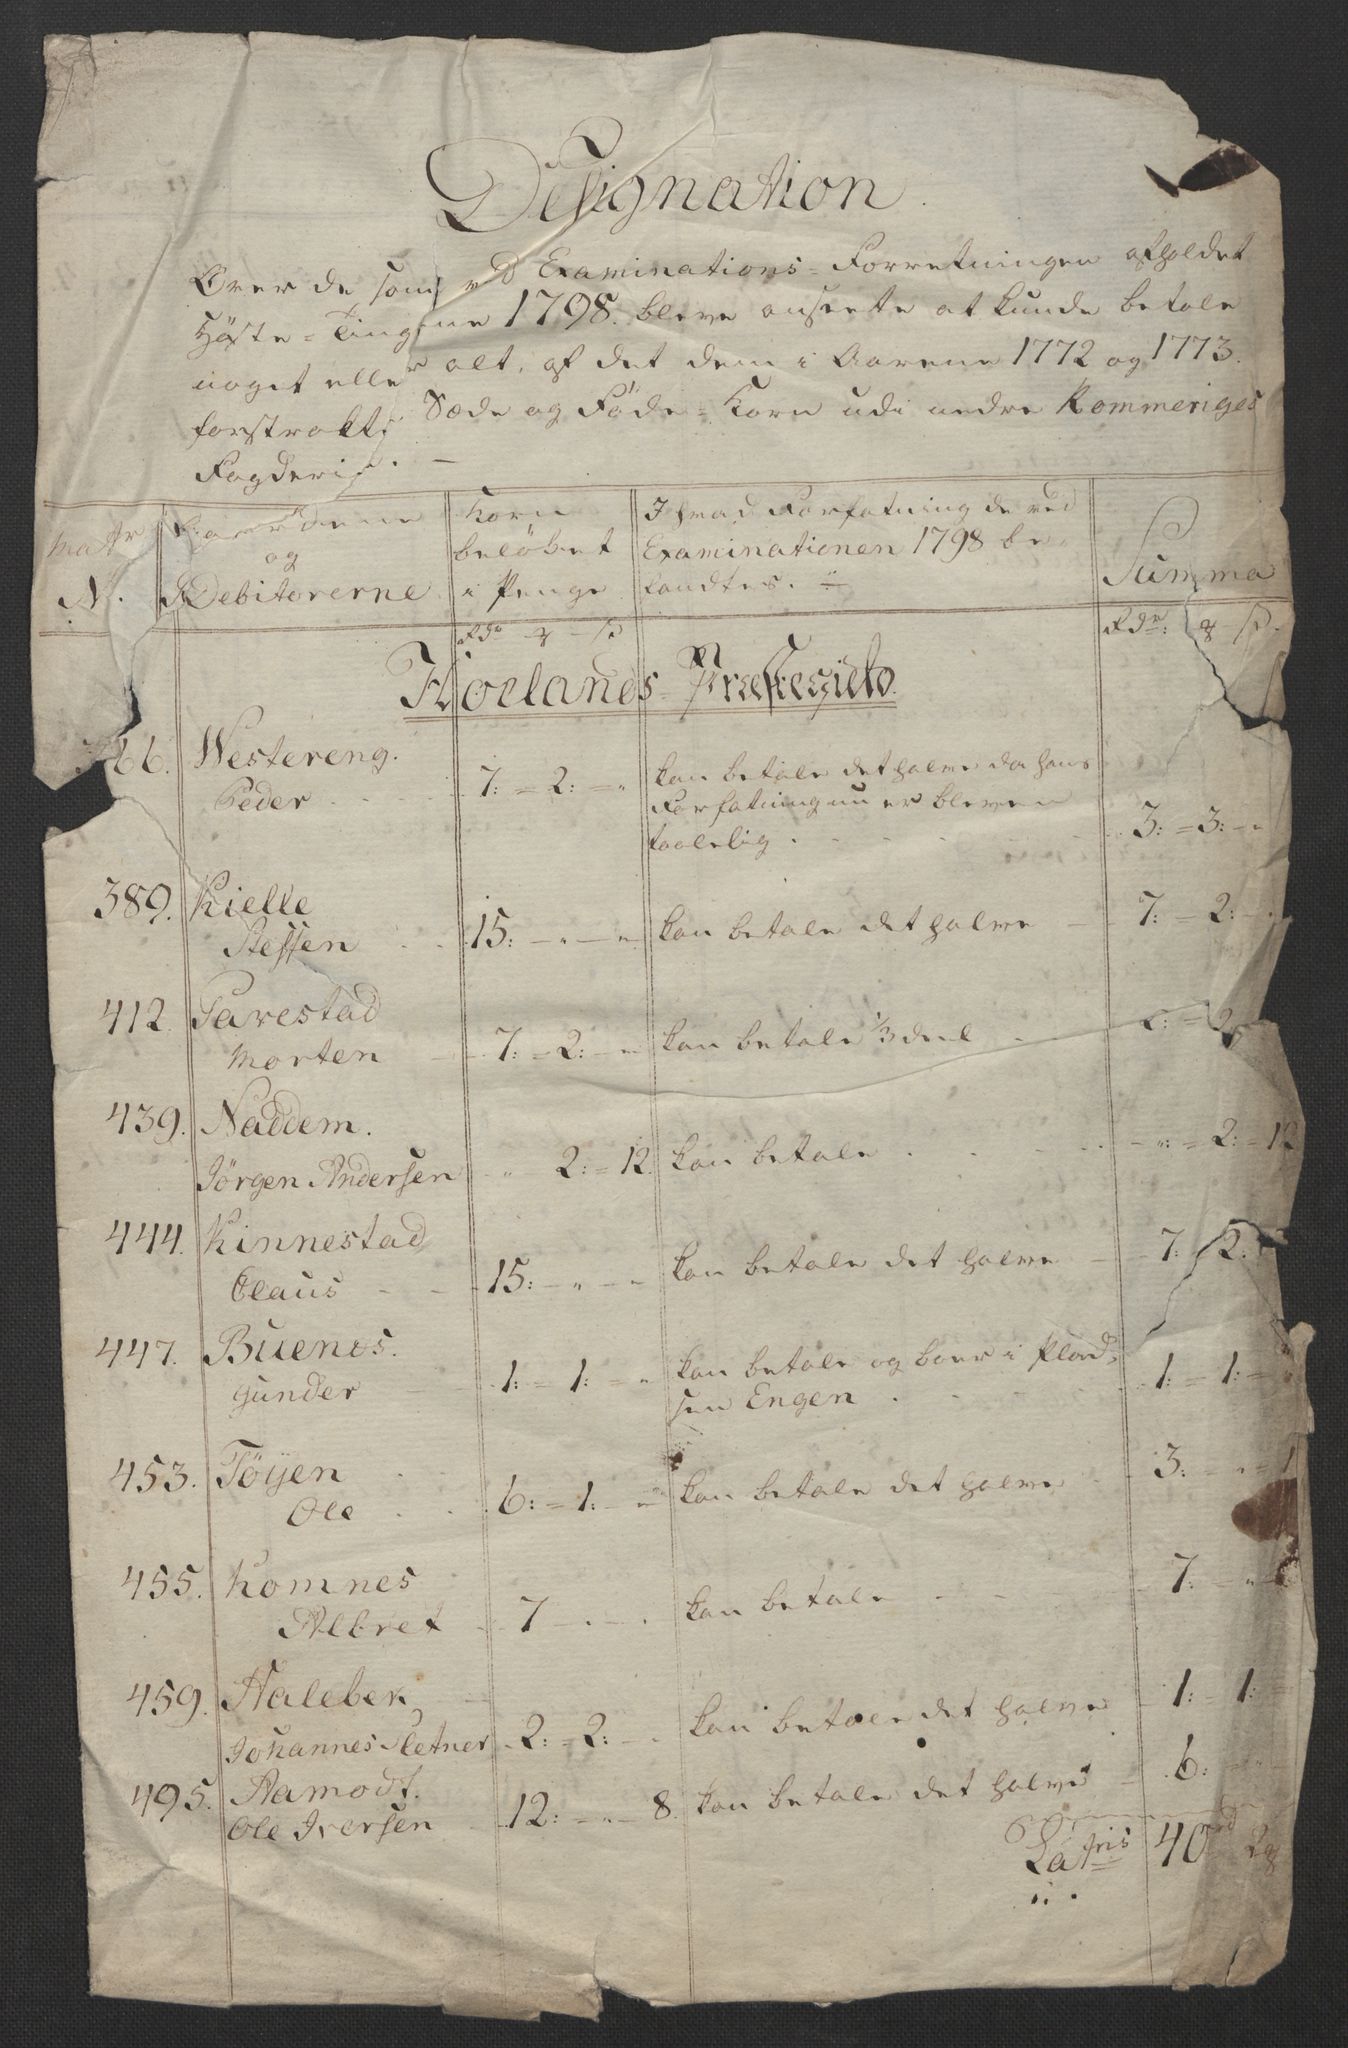 Designation
Over de som ved Examinations-Forretningen afholdet
Høste-Tingene 1798. bleve ansete at kunde betale
noget eller alt, af det dem i Aarene 1772 og 1773.
forstrakte Sæde og Føde-Korn udi nedre Rommeriges
Fogderie.
Matr Gaardene Korn I hvad Forfatning de ved
og beløbet Examinationen 1798 be- Summa
N. Debitorerne i Penge fandtes.
Rdr Rdr:
Hoelands Præstegield.
66. Westereng. kan betale det halve da hans
Peder 7: = 2: = " Forfatning nu er bleven
taalelig. 3: = 3: - "
389. Kielle
Steffen 15: - " - " kan betale det halve 7: = 2: - "
412. Tarestad
Morten 7: = 2: - " kan betale 1/3 deel 2: = 2
439. Naddem.
Jörgen Andersen " 2: = 12. kan betale " = 2: = 12
444. Kinnestad
Claus 15: - " - " kan betale det halve 7: 2:
447. Buenes. kan betale og boer i Plad-
Gunder 1: = 1: = " sen Engen. 1: = 1: =
453. Töyen
Ole 6: = 1: - " kan betale det halve 3: - " = 1
455. Komnes
Albret 7 - " - " kan betale 7: - " -
459. Halebek
Johannes Sletner 2: = 2: - " kan betale det halve 1: = 1: =
495. Aamodt.
Ole Iversen 12: = " - 8. kan betale det halve 6: = "
Latris 40rd 2